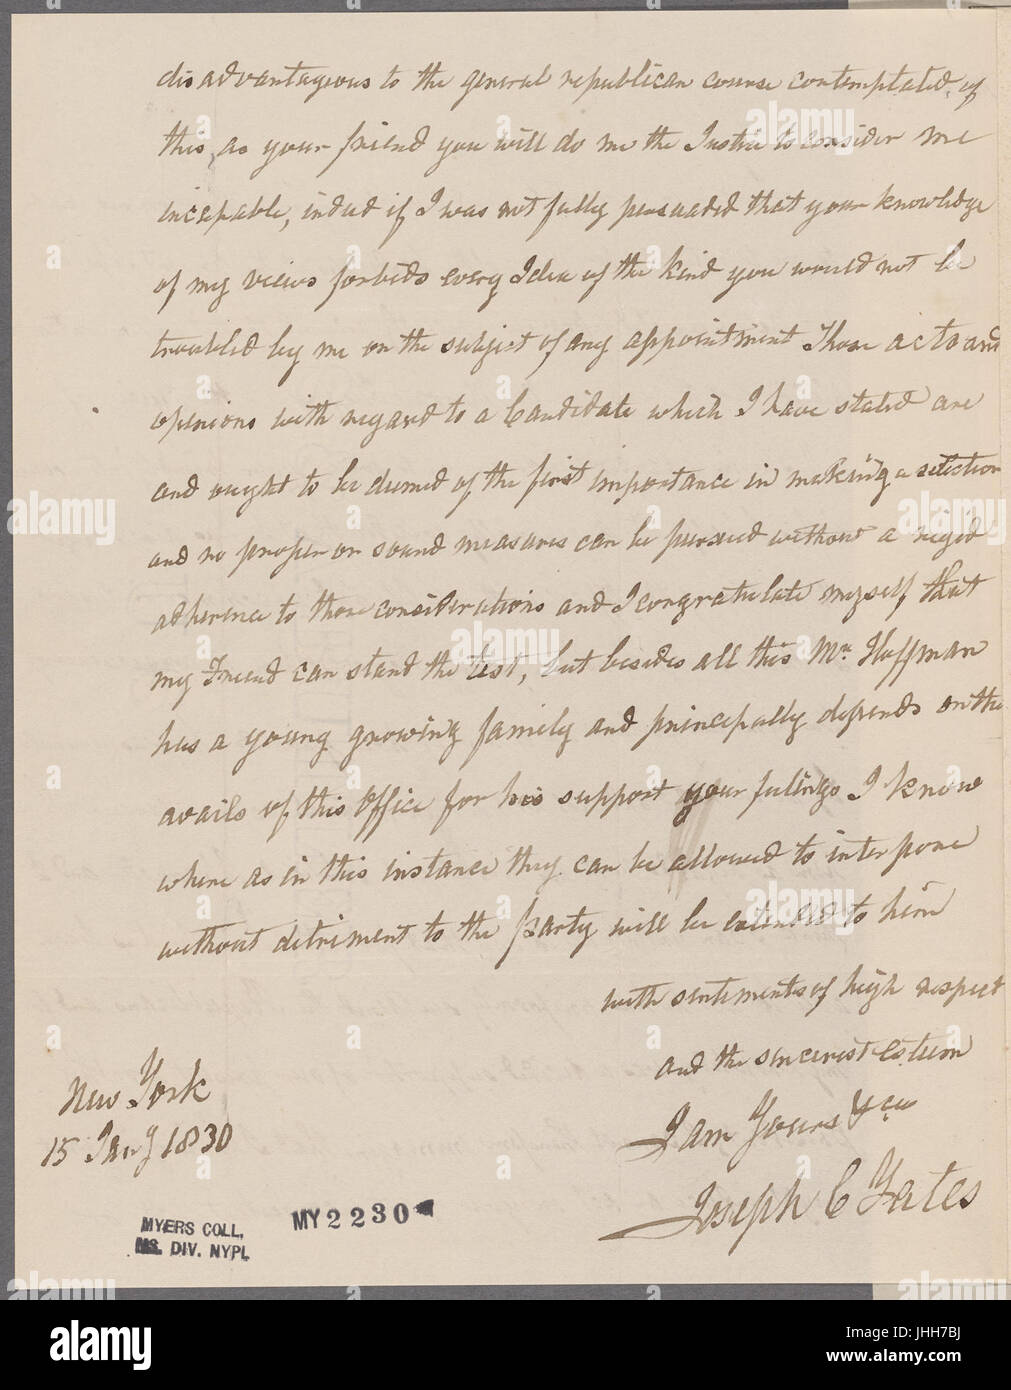 disadvantageous to the general republican course contemplated, of
this, as your friend you will do me the Justice to consider me
incapable, indeed if I was not fully persuaded that your knowledge
of my views forbids every Idea of the kind you would not be
troubled by me on the subject of any appointment Those acts and
opinions with regard to a Candidate which I have stated are
and ought to be deemed of the first importance in making a selection
and no proper or sound measures can be pursued without a rigid
adherence to those considerations and I congratulate myself that
my Friend can stand the test, but besides all this Mr. Hoffman
has a young growing family and principally depends on the
avails of this Office for his support your feelings I know
where as in this instance they can be allowed to interpose
without detriment to the party will be extended to him
with sentiments of high respect
and the sincerest esteem
I am Yours &c
Joseph C Yates
New York
15 Jany 1830
MYERS COLL.
MS. DIV. NYPL
MY 2230
alamy
Image ID: JHH7BJ
www.alamy.com